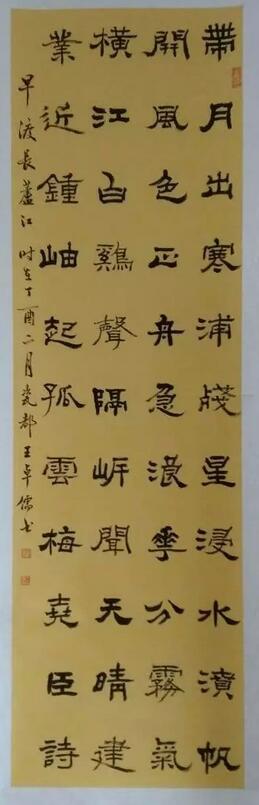 帶月出寒浦殘星浸水濆帆
開風色正舟急浪華分霧氣
橫江白鷄聲隔岍聞天晴建
業近鍾岫起孤雲梅堯臣詩
早渡長蘆江时在丁酉二月瓷都王卓儒书